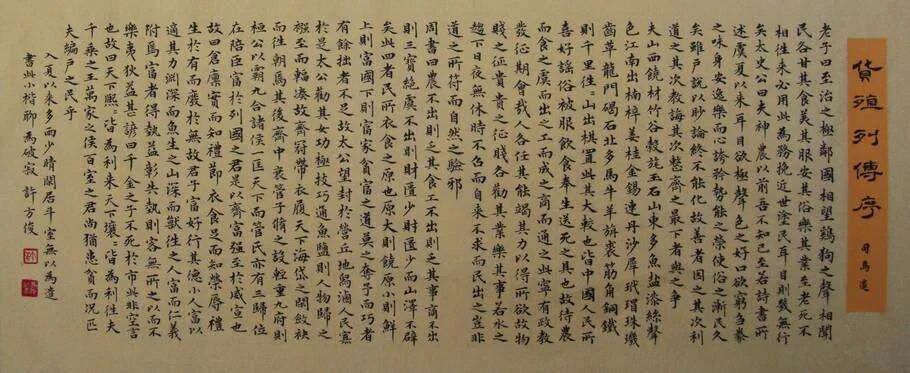 貨殖列傳序
司馬遷
老子曰至治之極鄰國相望鷄狗之聲相聞
民各甘其食美其服安其俗樂其業至老死不
相往來必用此為務挽近世塗民耳目則幾無行
矣太史公曰夫神農以前吾不知已至若詩書所
述虞夏以來耳目欲極聲色之好口欲窮芻豢
之味身安逸樂而心誇矜勢能之榮使俗之漸民久
矣雖戶說以眇論終不能化故善者因之其次利
道之其次教誨其次整齊之最下者與之爭
夫山西饒材竹谷旄玉石山東多魚鹽漆絲聲
色江南出楠梓薑桂金錫連丹沙犀玳瑁珠璣
齒革龍門碣石北多馬牛羊旃裘筋角銅鐵
則千里往々山出棋置此其大較也皆中國人民所
喜好謠俗被服飲食奉生送死之具也故待農
而食之虞而出之工而成之商而通之此寧有政教
發徵期會哉人各任其能竭其力以得所欲故物
賤之徵貴貴之徵賤各勸其業樂其事若水之
趨下日夜無休時不召而自來不求而民出之豈非
道之所符而自然之驗邪
周書曰農不出則乏其食工不出則乏其事商不出
則三寶絕虞不出則財匱少財匱少而山澤不辟
矣此四者民所衣食之原也原大則饒原小則鮮
上則富國下則富家貧富之道莫之奪予而巧者
有餘拙者不足故太公望封於營丘地潟鹵人民寡
於是太公勸其女功極技巧通魚鹽則人物歸之
繈至而輻湊故齊冠帶衣履天下海岱之閒斂袂
而往朝焉其後齊中衰管子脩之設輕重九府則
桓公以霸九合諸侯一匡天下而管氏亦有三歸位
在陪臣富於列國之君是以齊富強至於威宣也
故曰倉廩實而知禮節衣食足而知榮辱禮
生於有而廢於無故君子富好行其德小人富以
適其力淵深而魚生之山深而獸往之人富而仁義
附焉富者得執益彰失執則客無所之以而不
樂夷狄益甚諺曰千金之子不死於市此非空言
也故曰天下熙々皆為利來天下壤々皆為利往夫
千乘之王萬家之侯百室之君尚猶患貧而況匹
夫編戶之民乎
入夏以來多雨少晴閑居斗室無以為遣
書此小楷聊為破寂 許方俊